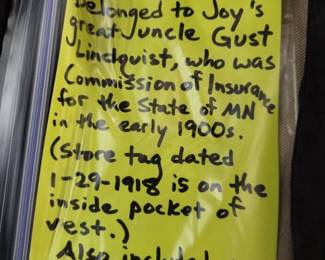 belonged to Joy's
great Uncle Gust
Lindquist, who was
Commission of Insurance
for the State of MN
in the early 1900s.
(Store tag dated
1-29-1918 is on the
inside pocket of
vest.)
Also included